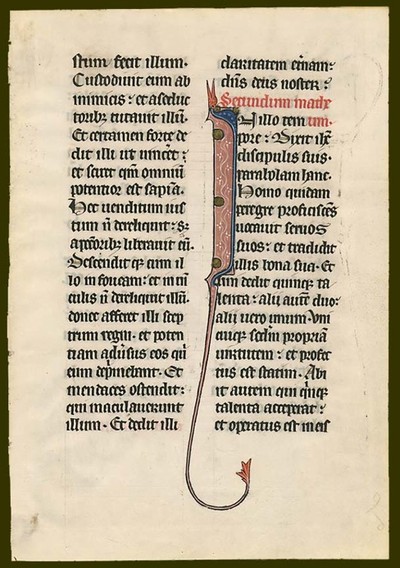 stum fecit illum.
Custodiuit eum ab
inimicis: et a seduc
toribꝫ tutauit illū.
Et certamen forte de
dit illi ut uincēt:
et sciret qm̄ omniū
potentior est sapīa.
Hec uenditum ius
tum n̄ dereliquit: sꝫ
a pctōribꝫ liberauit eū.
Descendit qꝫ cum il
lo in foueam: et in uī
culis n̄ dereliquit illū.
donec afferet illi scep
trum regni. et poten
tiam adūsus eos qͥ
eum dep̄mebant. Et
mendaces ostendit:
qui maculauerunt
illum. Et dedit illi
claritatem et̄nam:
dn̄s deus noster:
Secundum mathe
In illo tem um.
pore: Dixit ihc̄
discipulis suis.
parabolam hanc.
Homo quidam
peregre proficiscēs
uocauit seruos
suos: et tradidit
illis bona sua. Et
uni dedit quinqꝫ ta
lenta: alii autē duo:
alii uero unum. Vni
cuiqꝫ scd̄m propriā
uirtutem: et profec
tus est statim. Abi
it autem qui qͥnqꝫ
talenta acceperat:
et operatus est in eis